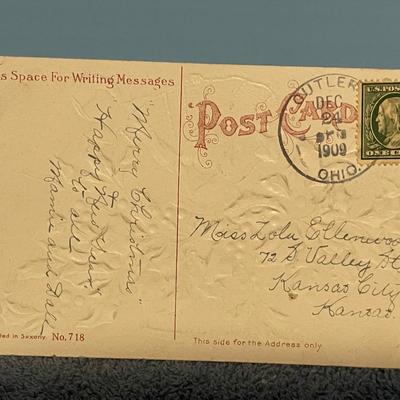 s Space For Writing Messages
POST CARD
CUTLER
DEC
24
1909
OHIO.
U.S. POS
ONE CE
"Merry Christmas"
"Happy New Year"
to all
Mamie and
Miss Lola Ellenwoo
72 S. Valley St
Kansas City
Kansas.
ted in Saxony No. 718
This side for the Address only